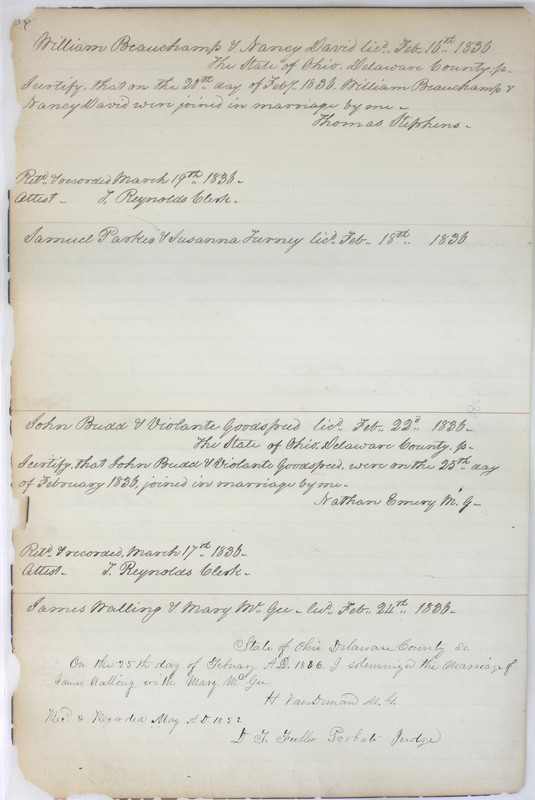 William Beauchamp & Nancy David licd. Feb. 16th 1836
The State of Ohio, Delaware County, ss.
I certify, that on the 28th day of Feby. 1836. William Beauchamp &
Nancy David were joined in marriage by me -
Thomas Stephens -
Retd. & recorded March 19th 1836 -
Attest - T. Reynolds Clerk -
Samuel Parkes & Susanna Turney licd. Feb. 18th 1836
John Budd & Violante Goodspeed licd. Feb. 22d. 1836 -
The State of Ohio, Delaware County, ss.
I certify, that John Budd & Violante Goodspeed, were on the 25th day
of February 1836, joined in marriage by me -
Nathan Emery M. G -
Retd. & recorded, March 17th 1836 -
Attest - T. Reynolds Clerk -
James Walling & Mary Mc. Gee - licd. Feb. 24th 1836 -
State of Ohio Delaware County ss
On the 25th day of Febuary A.D. 1836 I solemnized the marriage of
James Walling with Mary McGee
H Vandeman M. G.
Recd & Recorded May A D 1852
D T Fuller Probate Judge